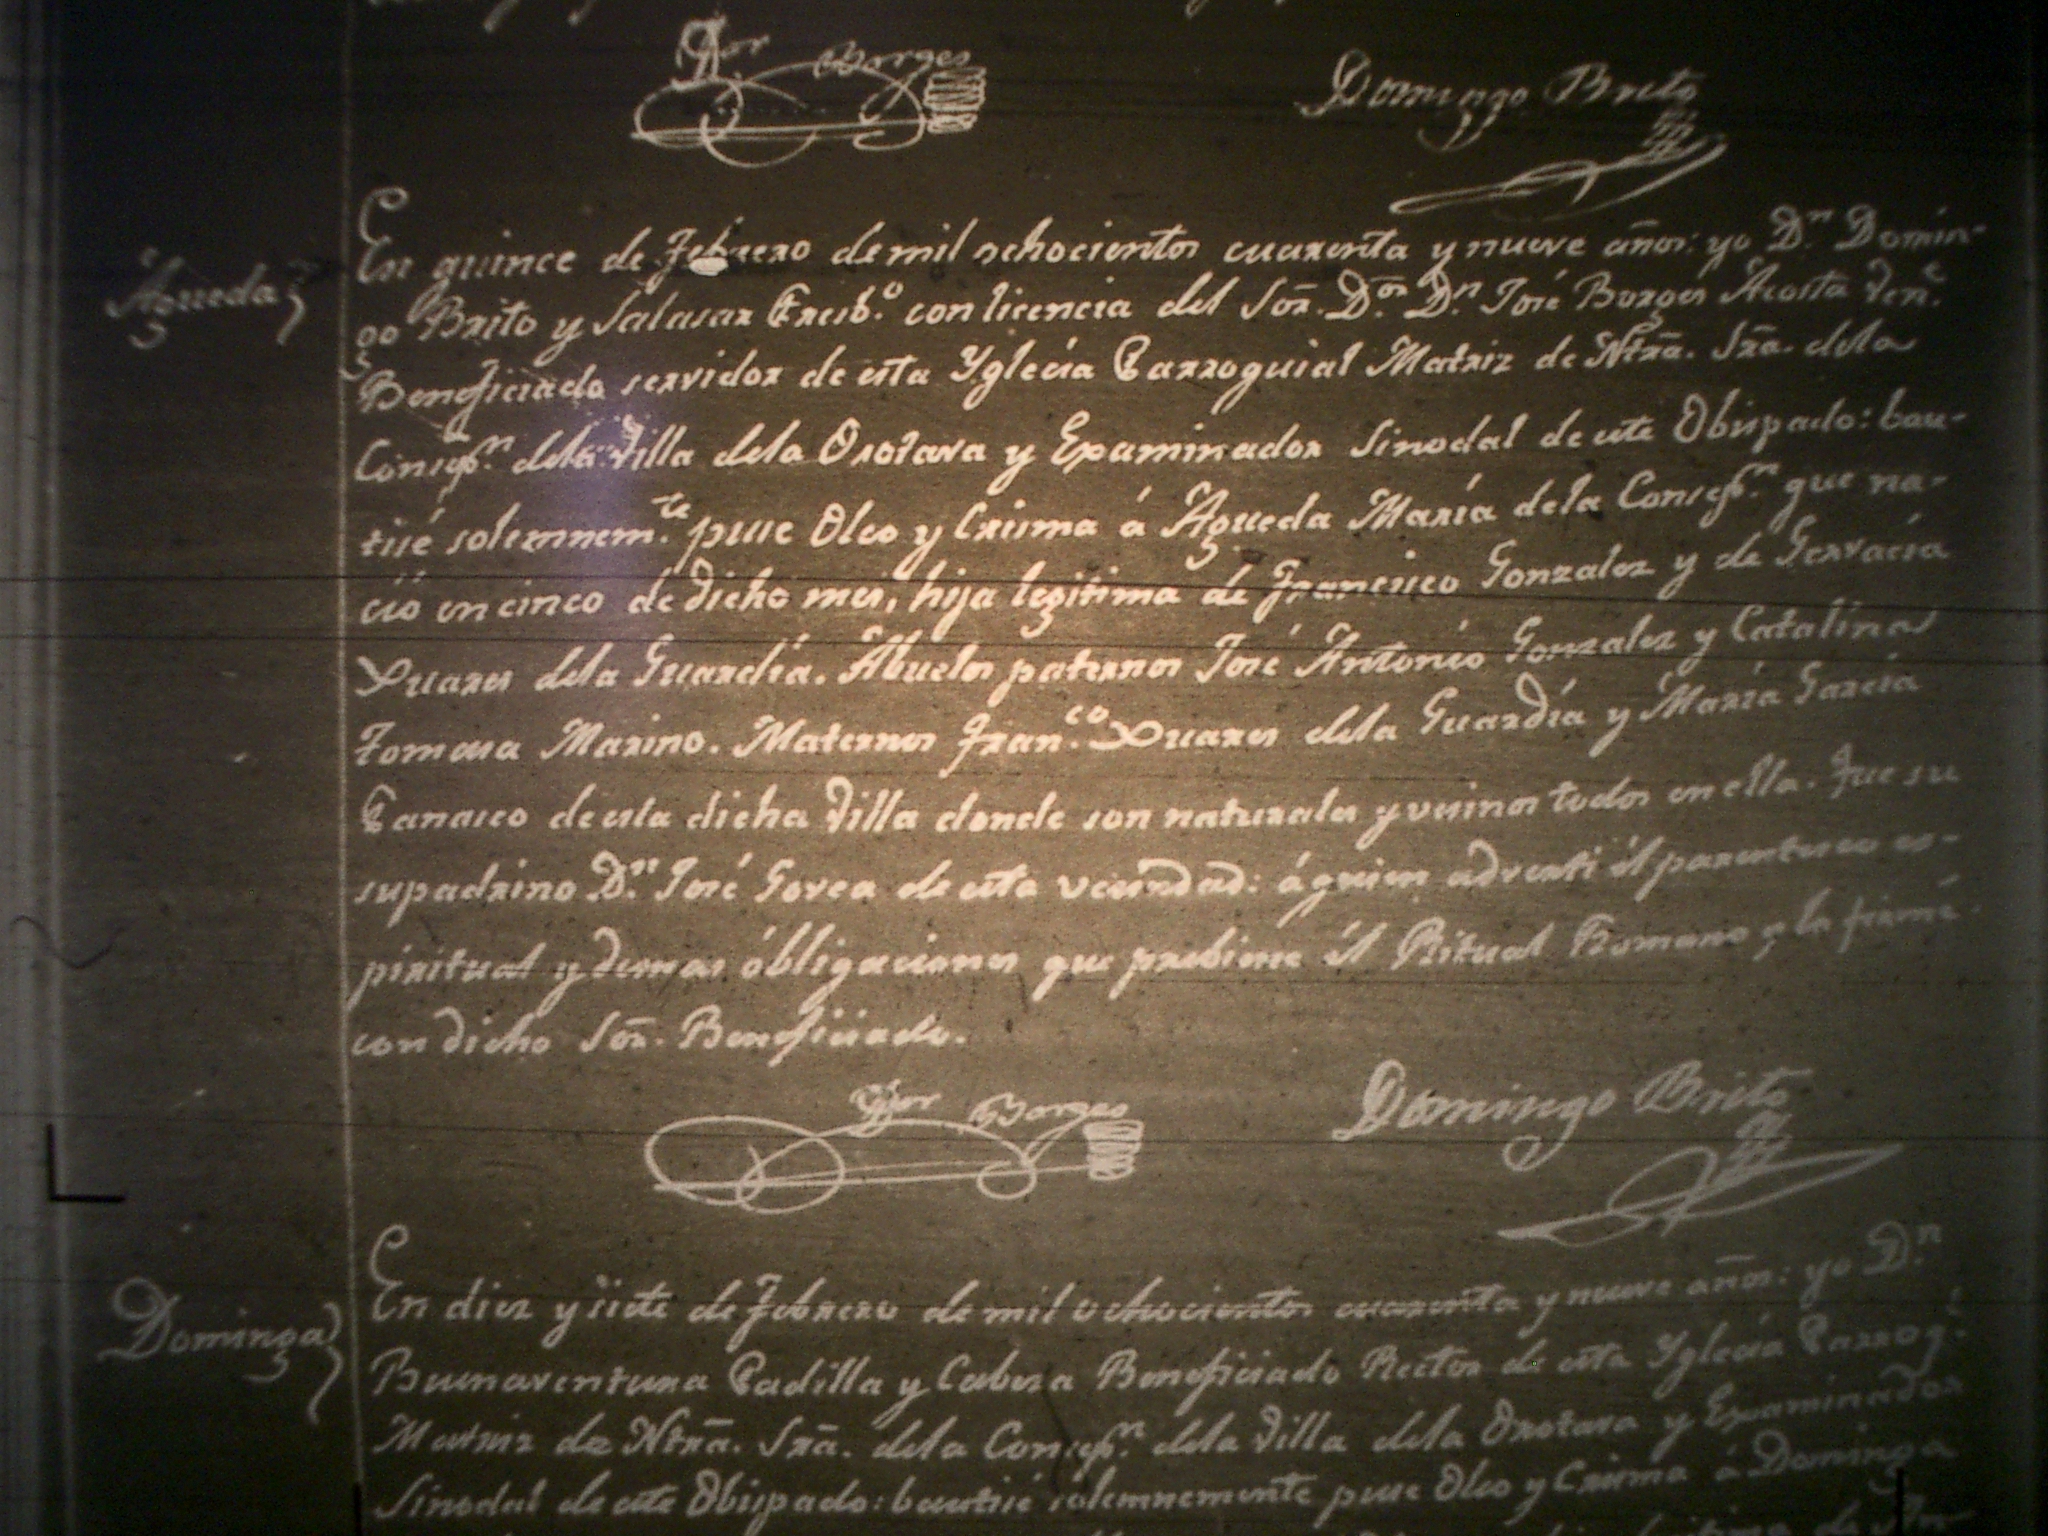 Dor Borges
Domingo Brito
Agueda
En quince de Febrero de mil ochocientos cuarenta y nueve años: yo Dn. Domin-
go Brito y Salasar Presb.o con licencia del Sor. Dor. Dn José Borges Acosta Ven.e
Beneficiado servidor de esta Yglecia Parroquial Matriz de Ntra. Sra. de la
Concepn. de la Villa de la Orotava y Examinador Sinodal de este Obispado: bau-
tisé solemnem.te puse Oleo y Crisma á Agueda María de la Concepn. que na-
ció en cinco de dicho mes, hija legitima de Francisco Gonzalez y de Gervacia
Xuares de la Guardia. Abuelos paternos José António Gonzalez y Catalina
Fomesa Marino. Maternos Fran.co Xuares de la Guardia y María Garcia
de esta dicha Villa donde son naturales y vesinos todos en ella. Fue su
supadrino Dn. José Govea de esta vecindad: á quien advertí él parentesco es-
piritual y demas óbligaciones que prebiene él Ritual Romano y la firmé
con dicho Sor. Beneficiado.
Dor Borges
Domingo Brito
Dominga
En diez y siete de Febrero de mil ochocientos cuarenta y nueve años: yo Dn
Buenaventura Padilla y Cabesa Beneficiado Rector de esta Yglecia Parroq.l
Matriz de Ntra. Sra. de la Concepn. de la Villa de la Orotava y Examinador
Sinodal de este Obispado: bautisé solemnemente puse Oleo y Crisma á Dominga